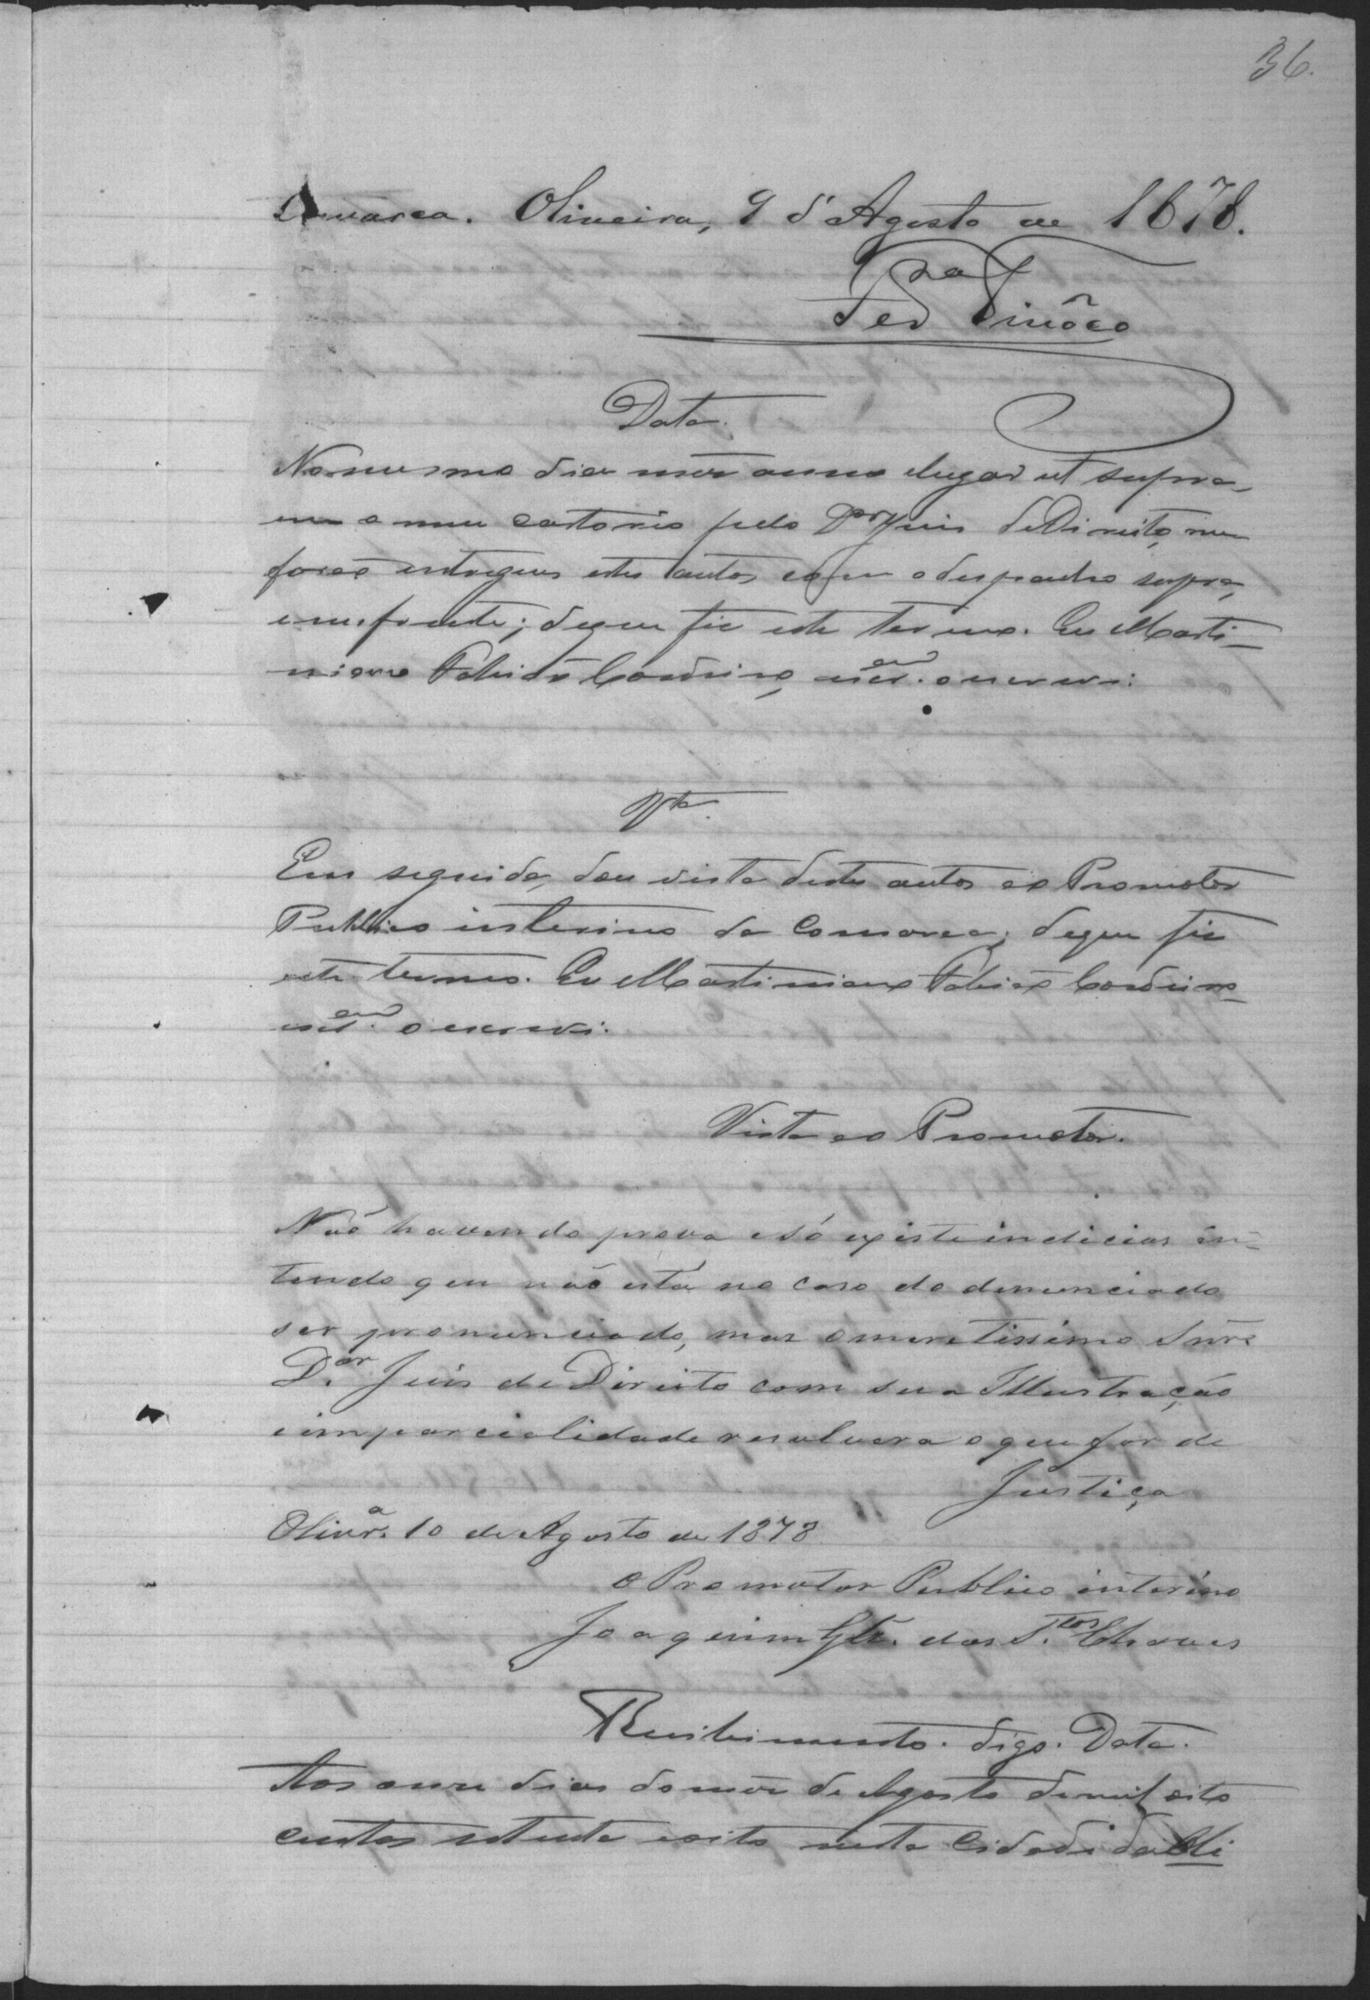 36.
Comarca. Oliveira, 9 d'Agosto de 1878.
Tinôco
Data.
No mesmo dia mez anno e lugar ut supra,
em o meu cartorio pelo Dor Juis de Direito, me
forão entregues estes autos com o despacho supra,
em frente; de que fiz este termo. Eu Marti-
niano Cardoso, escram. o escrevi.
Vta.
Em seguida, dou vista destes autos ao Promotor
Publico interino da Comarca; de que fiz
este termo. Eu Martiniano Cardoso
escram. o escrevi.
Vista ao Promotor.
Não havendo prova e só existe indicios in-
tendo que não está no caso do denunciado
ser pronunciado, mas o meretissimo Snr
D.or Juis de Direito com sua Illustração
e imparcialidade resolvera o que for de
Justiça
Olivra. 10 de Agosto de 1878
O Promotor Publico interino
Joaquim dos Chaves
Recibimento. digo. Data.
Aos onze dias do mez de Agosto de mil oito
centos setenta e oito nesta Cidade da Oli